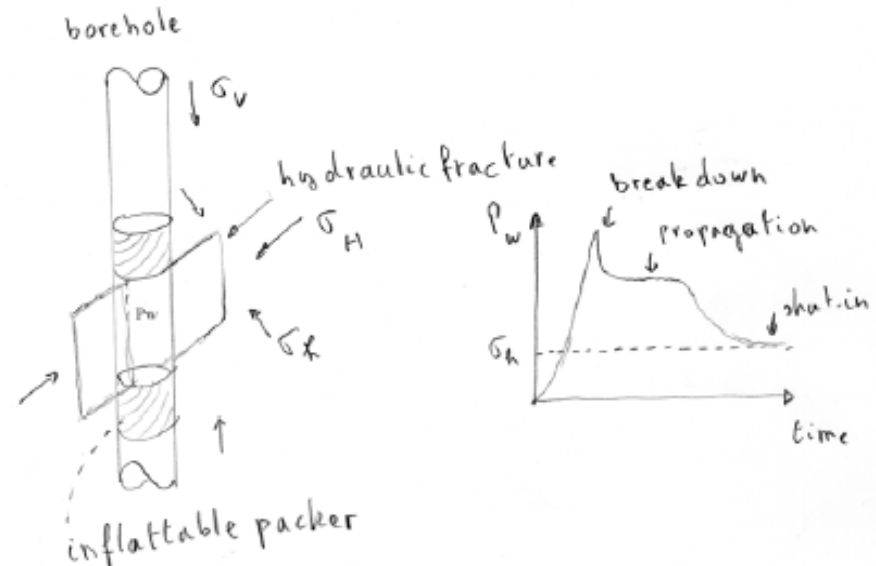 borehole
σv
hydraulic fracture
σH
Pw
σh
inflattable packer
breakdown
Pw
propagation
shut-in
σh
time